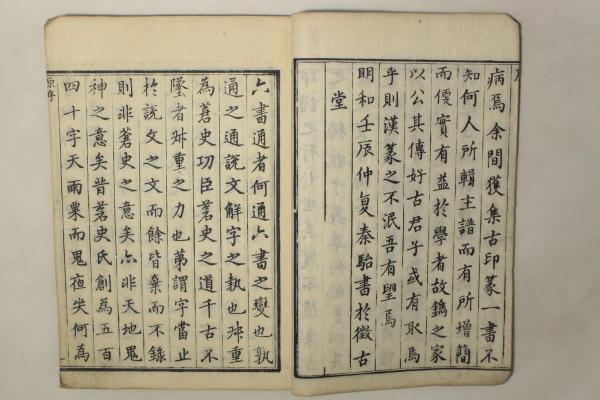 病焉余間獲集古印篆一書不
知何人所輯主譜而有所增簡
而便實有益於學者故鐫之家
以公其傳好古君子或有取焉
乎則漢篆之不泯吾有望焉
明和壬辰仲夏秦駘書於徵古
堂
六書通者何通六書之變也孰
通之通說文解字之執也孰重
為蒼史功臣蒼史之道千古不
墜者叔重之力也第謂字當止
於說文之文而餘皆棄而不錄
則非蒼史之意矣亦非天地鬼
神之意矣昔蒼史氏創為五百
四十字天雨粟而鬼夜哭何為
原序